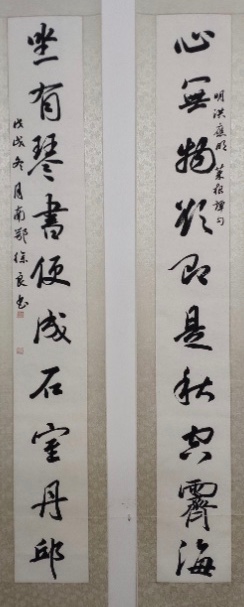 明洪應明 菜根譚句
心無物欲即是秋空霽海
坐有琴書便成石室丹邱
戊戌冬月南鄂徐良書